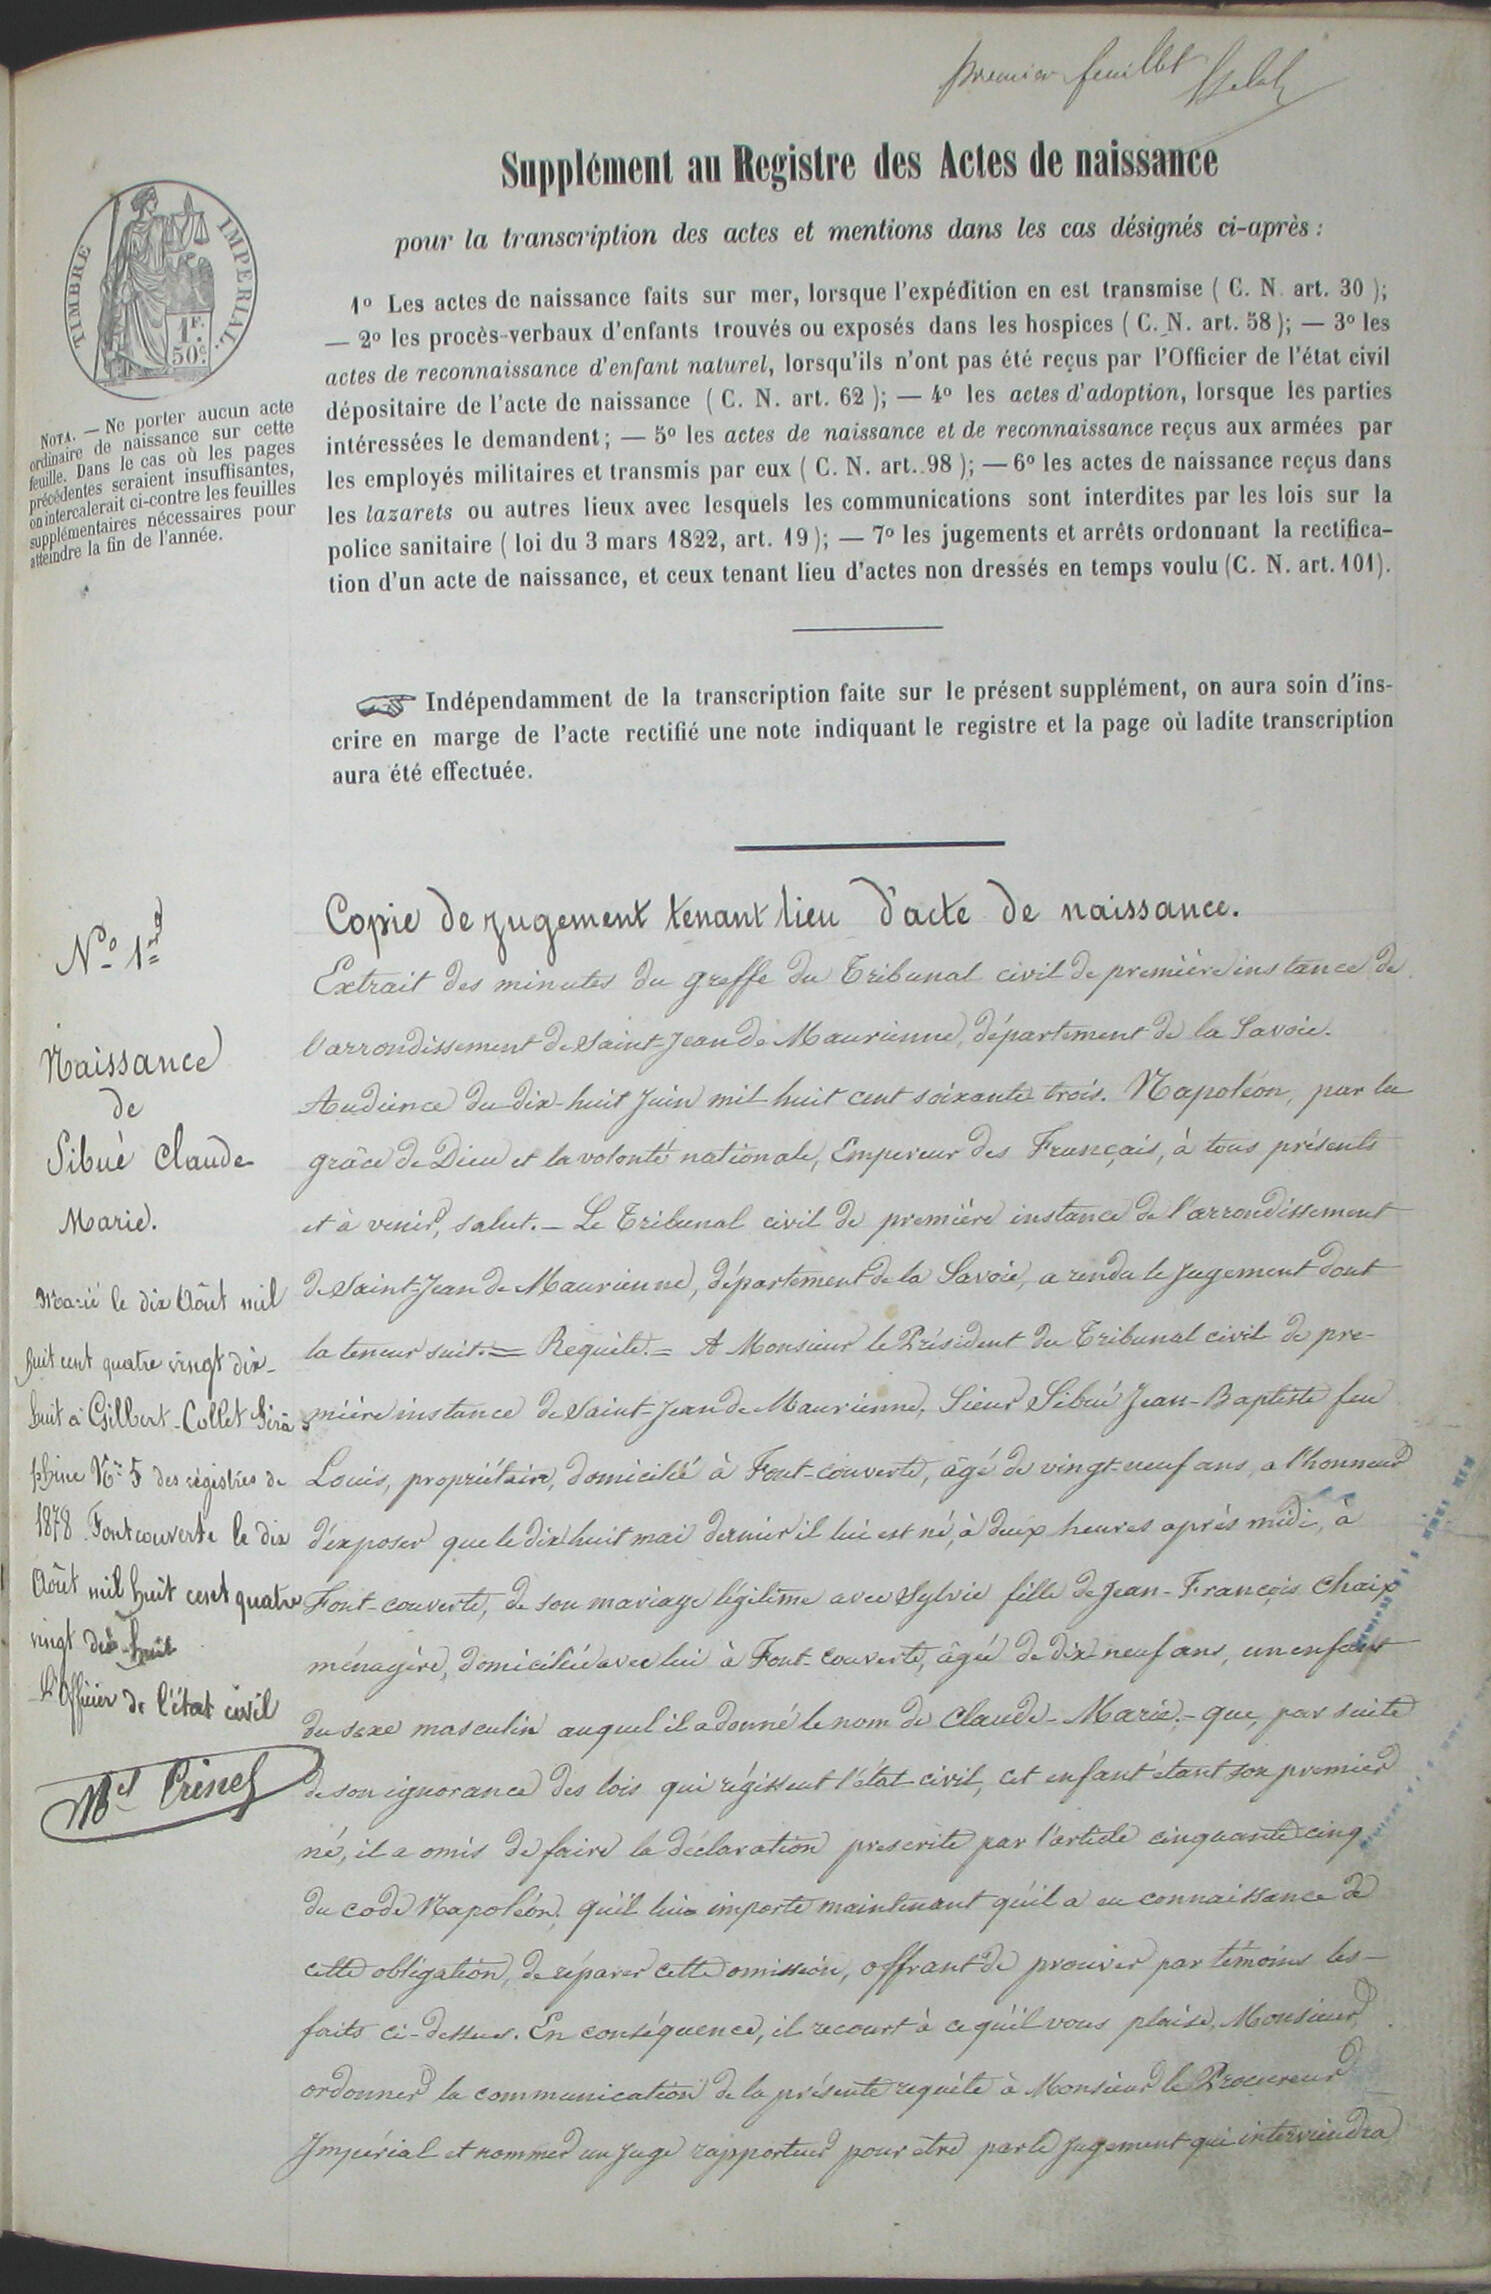 premier feuillet
Supplément au Registre des Actes de naissance
pour la transcription des actes et mentions dans les cas désignés ci-après :
TIMBRE IMPERIAL.
1F.
50c.
1º Les actes de naissance faits sur mer, lorsque l'expédition en est transmise ( C. N. art. 30 );
— 2º les procès-verbaux d'enfants trouvés ou exposés dans les hospices ( C. N. art. 58 ); — 3º les
actes de reconnaissance d'enfant naturel, lorsqu'ils n'ont pas été reçus par l'Officier de l'état civil
dépositaire de l'acte de naissance ( C. N. art. 62 ); — 4º les actes d'adoption, lorsque les parties
intéressées le demandent ; — 5º les actes de naissance et de reconnaissance reçus aux armées par
les employés militaires et transmis par eux ( C. N. art. 98 ); — 6º les actes de naissance reçus dans
les lazarets ou autres lieux avec lesquels les communications sont interdites par les lois sur la
police sanitaire ( loi du 3 mars 1822, art. 19 ); — 7º les jugements et arrêts ordonnant la rectifica-
tion d'un acte de naissance, et ceux tenant lieu d'actes non dressés en temps voulu (C. N. art. 101).
NOTA. — Ne porter aucun acte
ordinaire de naissance sur cette
feuille. Dans le cas où les pages
précédentes seraient insuffisantes,
on intercalerait ci-contre les feuilles
supplémentaires nécessaires pour
atteindre la fin de l'année.
☞ Indépendamment de la transcription faite sur le présent supplément, on aura soin d'ins-
crire en marge de l'acte rectifié une note indiquant le registre et la page où ladite transcription
aura été effectuée.
Nº 1er
Naissance
de
Sibué Claude
Marie.
Marié le dix Août mil
huit cent quatre vingt dix-
huit à Gilbert-Collet Séra
phine Nº 5 des régistres de
1878 Fontcouverte le dix
Août mil huit cent quatre
vingt dix-huit
L'Officier de l'état civil
Copie de jugement tenant lieu d'acte de naissance.
Extrait des minutes du greffe du Tribunal civil de première instance de
l'arrondissement de Saint-Jean de Maurienne, département de la Savoie.
Audience du dix-huit Juin mil huit cent soixante trois. Napoléon, par la
grâce de Dieu et la volonté nationale, Empereur des Français, à tous présents
et à venir, salut. — Le Tribunal civil de première instance de l'arrondissement
de Saint-Jean de Maurienne, département de la Savoie, a rendu le Jugement dont
la teneur suit. = Requête. = A Monsieur le Président du Tribunal civil de pre-
mière instance de Saint-Jean de Maurienne, Sieur Sibué Jean-Baptiste feu
Louis, propriétaire, domicilié à Font-couverte, âgé de vingt-neuf ans, a l'honneur
d'exposer que le dix huit mai dernier il lui est né, à deux heures après midi, à
Font-couverte, de son mariage légitime avec Sylvie fille de Jean-François Chaix
ménagère, domiciliée avec lui à Font-couverte, âgée de dix neuf ans, un enfant
du sexe masculin auquel il a donné le nom de Claude-Marie. - que, par suite
de son ignorance des lois qui régissent l'état civil, cet enfant étant son premier
né, il a omis de faire la déclaration prescrite par l'article cinquante cinq
du code Napoléon, qu'il lui importe maintenant qu'il a eu connaissance de
cette obligation, de réparer cette omission, offrant de prouver par témoins les
faits ci-dessus. En conséquence, il recourt à ce qu'il vous plaise, Monsieur,
ordonner la communication de la présente requête à Monsieur le Procureur
Impérial et nommer un Juge rapporteur pour être par le Jugement qui interviendra